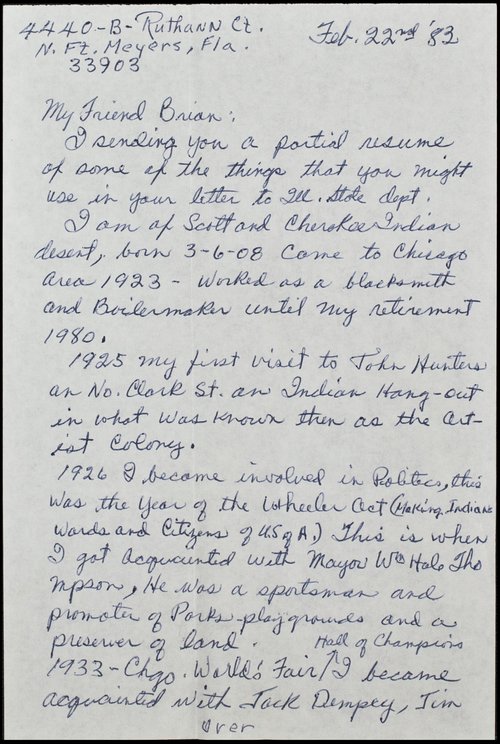 4440-B-Ruthann Ct.
N. Ft. Meyers, Fla.
33903
Feb. 22nd '83
My Friend Brian:
I sending you a partial resume
of some of the things that you might
use in your letter to Ill. State dept.
I am of Scott and Cherokee Indian
desent, born 3-6-08 Came to Chicago
Area 1923 - Worked as a blacksmith
and Boilermaker until my retirement
1980.
1925 my first visit to John Hunters
on No. Clark St. an Indian Hang-out
in what was known then as the Art-
ist Colony.
1926 I became involved in Politics, this
was the year of the Wheeler Act (Making Indians
Wards and Citizens of U.S of A.) This is when
I got acquainted with Mayor Wm Hale Tho
mpson, He was a sportsman and
promoter of Parks-playgrounds and a
preserver of land.
Hall of Champions
1933-Chgo. World's Fair/I became
acquainted with Jack Dempey, Jim
over